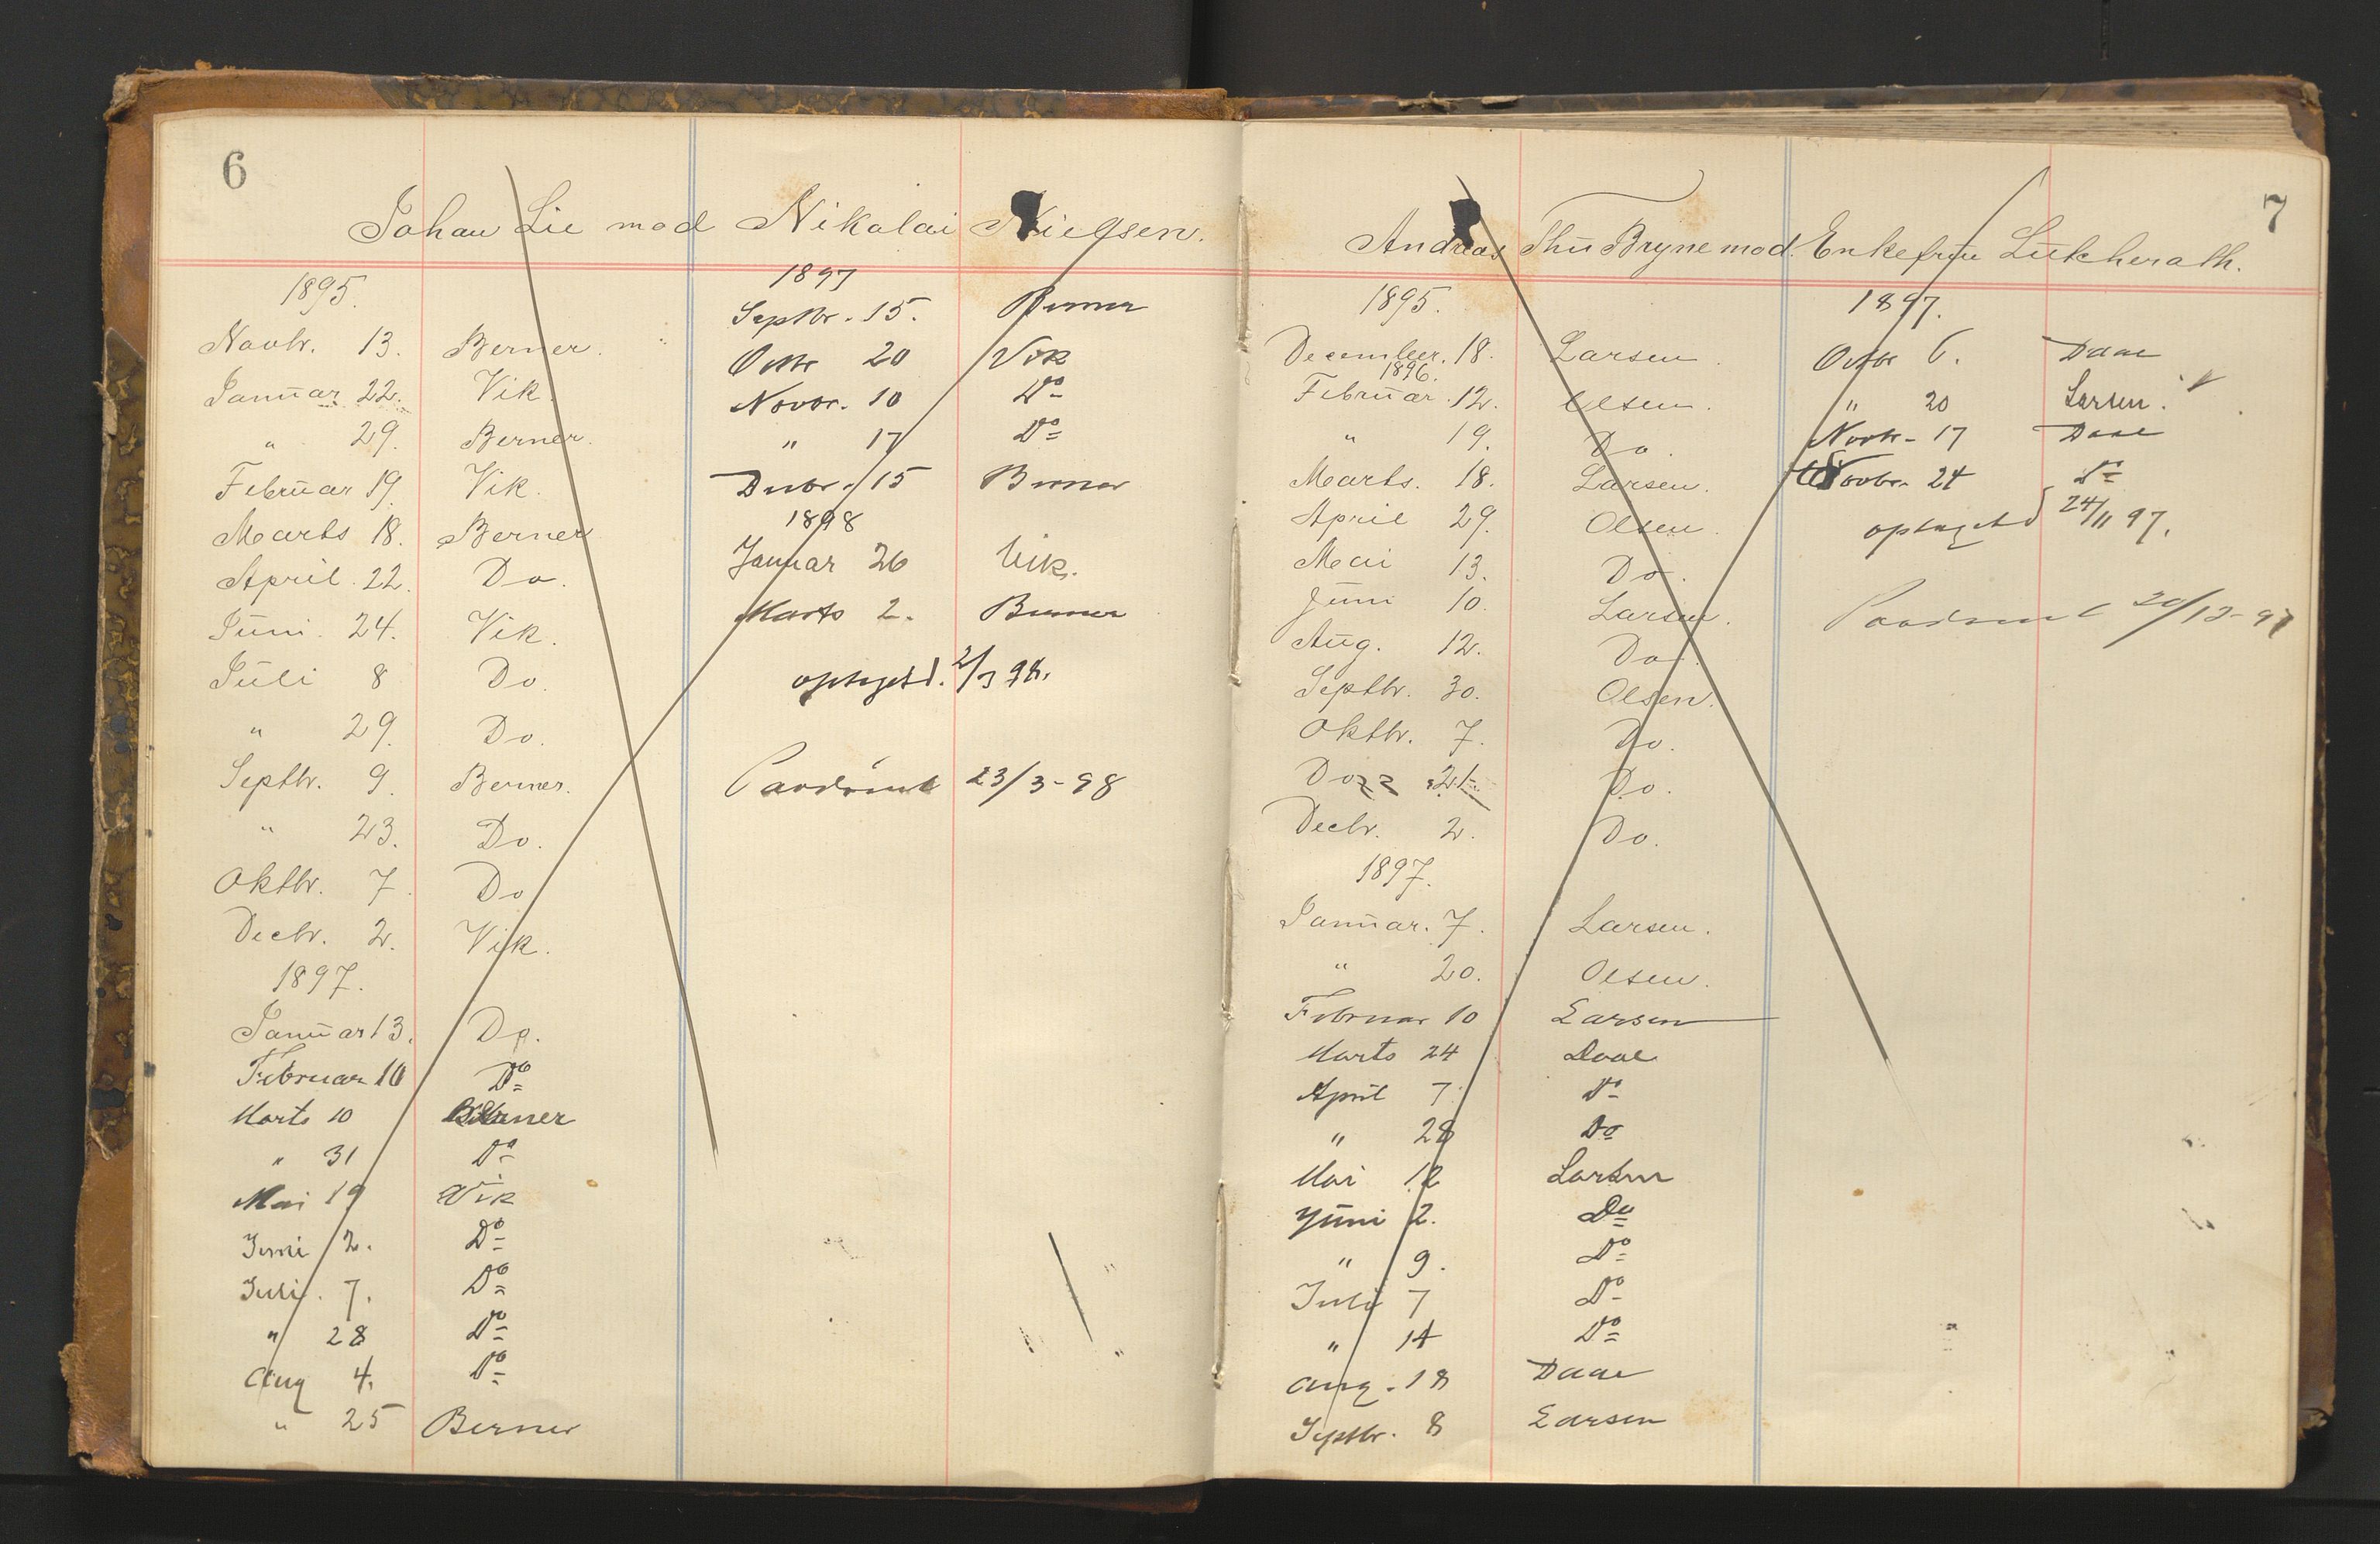 6
Johan Lie mod Nikolai Nielsen.
1895.
Novbr. 13. Berner.
Januar 22. Vik.
" 29. Berner.
Februar 19. Vik.
Marts 18. Berner
April 22. Do.
Juni 24. Vik.
Juli 8 Do.
" 29. Do.
Septbr. 9. Berner.
" 23. Do.
Oktbr. 7. Do
Decbr. 2. Vik.
1897.
Januar 13. Do.
Februar 10 Do
Marts 10 Berner
" 31 Do
Mai 19 Vik
Juni 2. Do
Juli 7. Do
" 28 Do
Aug 4. Do
" 25 Berner
1897
Septbr. 15. Berner
Octbr 20 Vik
Novbr. 10 Do
" 17 Do
Decbr. 15 Berner
1898
Januar 26 Vik.
Marts 2. Berner
optaget d. 2/3 98.
Paadømt 23/3-98
7
Andreas Thu Bryne mod Enkefru Lütcherath.
1895.
December. 18. Larsen.
1896.
Februar. 12. Olsen.
" 19. Do.
Marts. 18. Larsen.
April 29. Olsen.
Mai 13. Do.
Juni 10. Larsen.
Aug. 12. Do.
Septbr. 30. Olsen.
Oktbr. 7. Do.
Do 21 Do.
Decbr. 2. Do.
1897.
Januar. 7. Larsen.
" 20. Olsen.
Februar 10 Larsen
Marts 24 Daae
April 7 Do
" 28 Do
Mai 12 Larsen
Juni 2. Do
" 9. Do
Juli 7 Do
" 14 Do
Aug. 18 Daae
Septbr. 8 Larsen
1897.
Octbr 6. Daae
" 20 Larsen.
Novbr. 17 Daae
Novbr. 24 Do
optaget d 24/11 97.
Paadømt 20/12-97